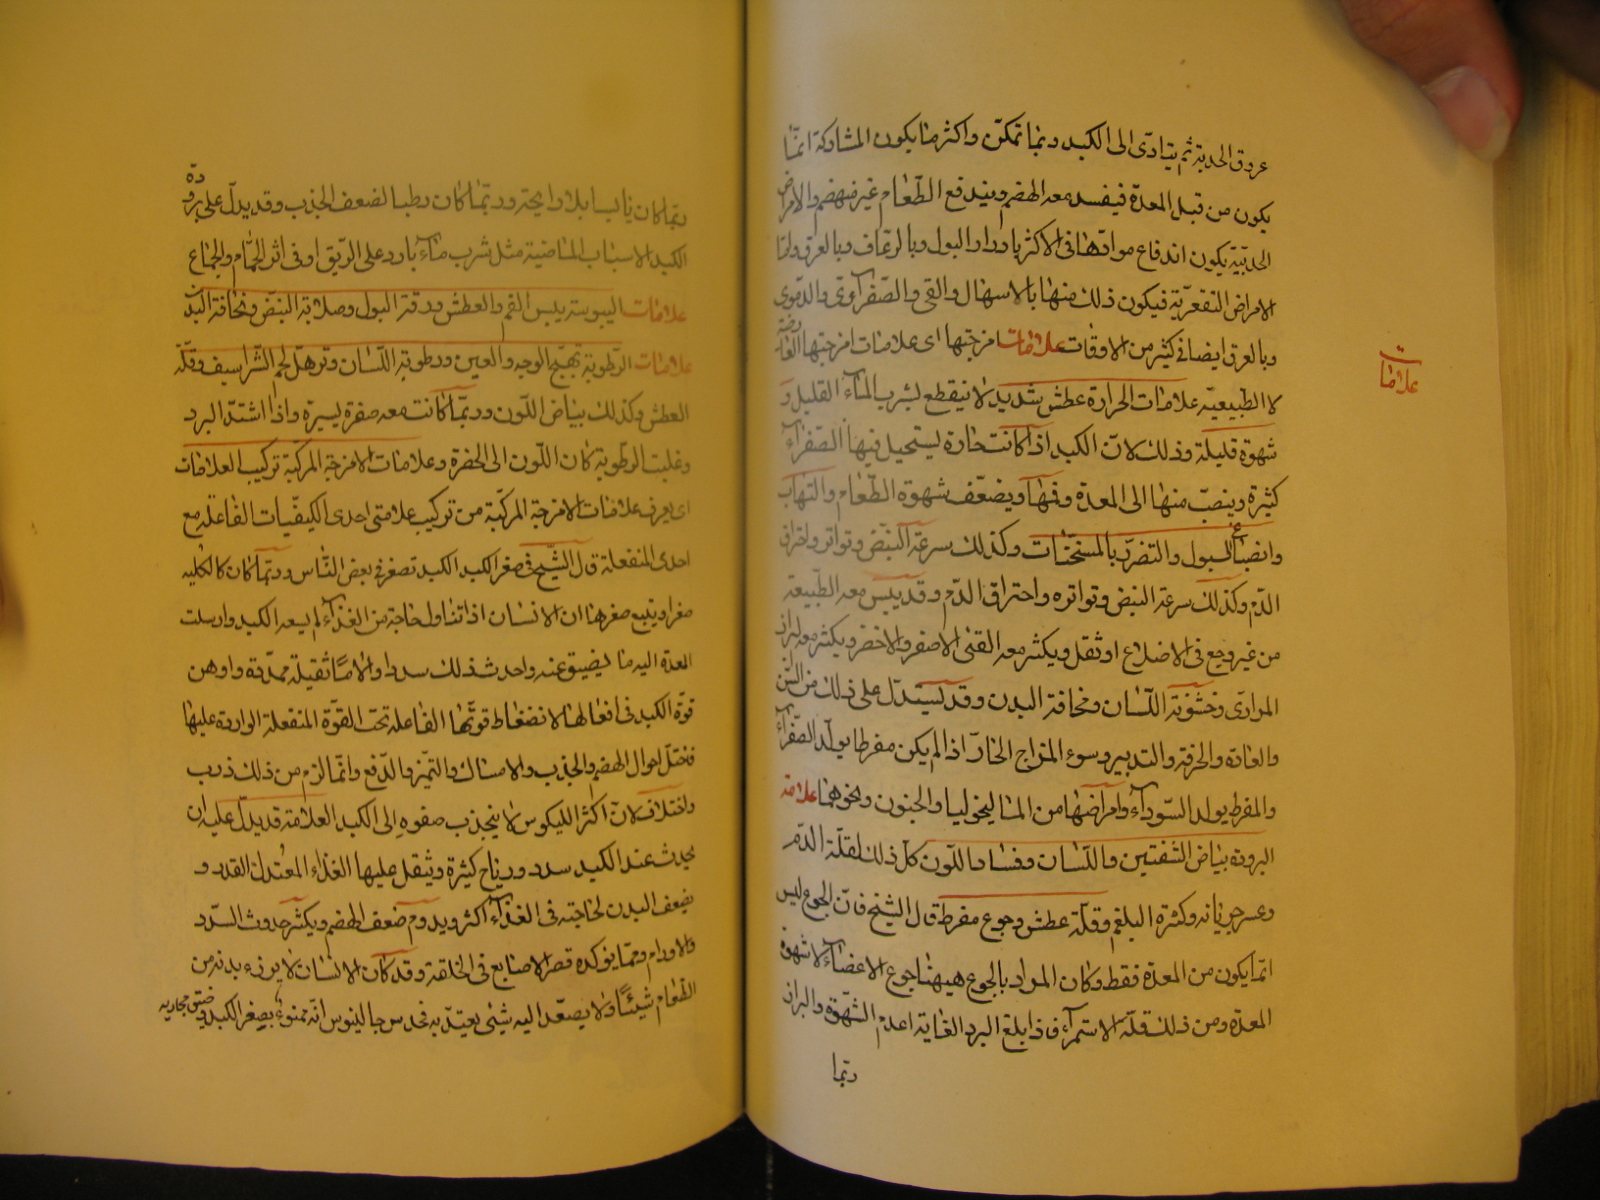 عروق الحدبة ثم يتادى الى الكبد وربما تمكن واكثر ما يكون المشاركة انما
يكون من قبل المعدة فيفسد معه الهضم ويندفع الطعام غير منهضم والامراض
الحدبية يكون اندفاع موادها فى الاكثر بادرار البول وبالرعاف وبالعرق واما
الامراض التقعرية فيكون ذلك منها بالاسهال والقى والصفراوى والدموى
وبالعرق ايضا فى كثير من الاوقات علامات امزجتها اى علامات امزجتها العارضة
علامات
لا الطبيعية علامات الحرارة عطش شديد لا ينقطع بشرب الماء القليل و
شهوة قليلة وذلك لان الكبد اذا كانت حارة يستحيل فيها الصفراء
كثيرة وينصب منها الى المعدة وفمها ويضعف شهوة الطعام والتهاب
وانصباغ البول والتضرر بالمسخنات وكذلك سرعة النبض وتواتر واحتراق
الدم وكذلك سرعة النبض وتواتره واحتراق الدم وقد ييبس معه الطبيعة
من غير وجع فى الاضلاع او ثقل ويكثر معه القئ الاصفر والاخضر ويكثر معه البراز
المرارى وخشونة اللسان ونحافة البدن وقد يستدل على ذلك من السن
والعادة والحرفة والتدبير وسوء المزاج الحار اذا لم يكن مفرطا يولد الصفراء
والمفرط يولد السوداء وامراضها من الماليخوليا والجنون ونحوهما علامة
البرودة بياض الشفتين واللسان وفساد اللون كل ذلك لقلة الدم
وعسر جريانه وكثرة البلغم وقلة عطش وجوع مفرط قال الشيخ فان الجوع ليس
انما يكون من المعدة فقط وكان المراد بالجوع هيهنا جوع الاعضاء لا شهوة
المعدة ومن ذلك قلة الاستمراء فاذا بلغ البرد الغاية اعدم الشهوة والبراز
ربما
ربما كان يابسا بلا رايحة وربما كان رطبا لضعف الجذب وقد يدل على برودة
الكبد الاسباب الماضية مثل شرب ماء بارد على الريق او فى اثر الحمام والجماع
علامات اليبوسة يبس الفم والعطش ورقة البول وصلابة النبض ونحافة البدن
علامات الرطوبة تهيج الوجه والعين ورطوبة اللسان وترهل لحم الشراسيف وقلة
العطش وكذلك بياض اللون وربما كانت معه صفرة يسيرة واذا اشتد البرد
وغلبت الرطوبة كان اللون الى الخضرة وعلامات الامزجة المركبة تركيب العلامات
اى يعرف علامات الامزجة المركبة من تركيب علامتى احدى الكيفيات الفاعلة مع
احدى المنفعلة قال الشيخ فى صغر الكبد الكبد تصغر فى بعض الناس وربما كان كالكليه
صغرا ويتبع صغرها ان الانسان اذا تناول حاجة من الغذاء لم يسعه الكبد وارسلت
المعدة اليه ما يضيق عنه واحدث ذلك سددا والاما ثقيلة ممددة واوهن
قوة الكبد فى افعالها لانضغاط قوتها الفاعلة تحت القوة المنفعلة الواردة عليها
فختل احوال الهضم والجذب والامساك والتميز والدفع وانما لزم من ذلك ذرب
واختلاف لان اكثر الكيلوس لا ينجذب صفوه الى الكبد العلامة قد يدل عليه ان
يحدث عند الكبد سدد ورياح كثيرة ويثقل عليها الغذاء المعتدل القدر و
يضعف البدن لحاجته فى الغذاء اكثر ويدوم ضعف الهضم ويكثر حدوث السدد
والاورام ومما يؤكده قصر الاصابع فى الخلقة وقد كان الانسان لا يرزء بدنه من
الطعام شيئا ولا يصعد اليه شئ يعتد به فحدس جالينوس انه ممنوء بصغر الكبد وضيق مجاريه